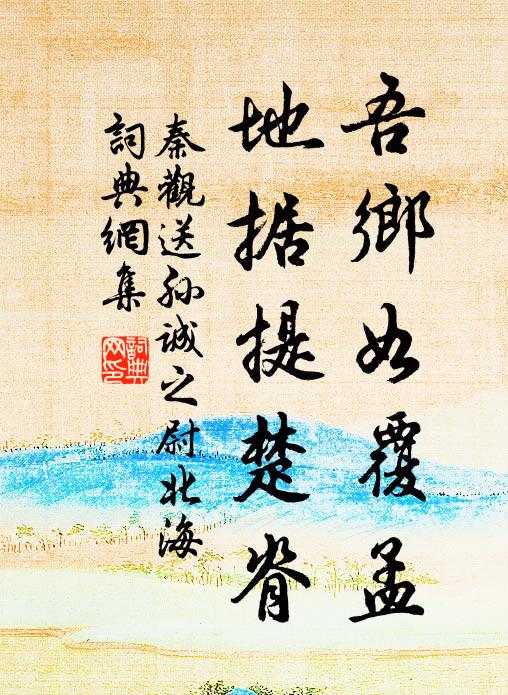 吾鄉如覆盂
地据揚楚脊
秦觀送孫誠之尉北海
詞典網集
詞典网印